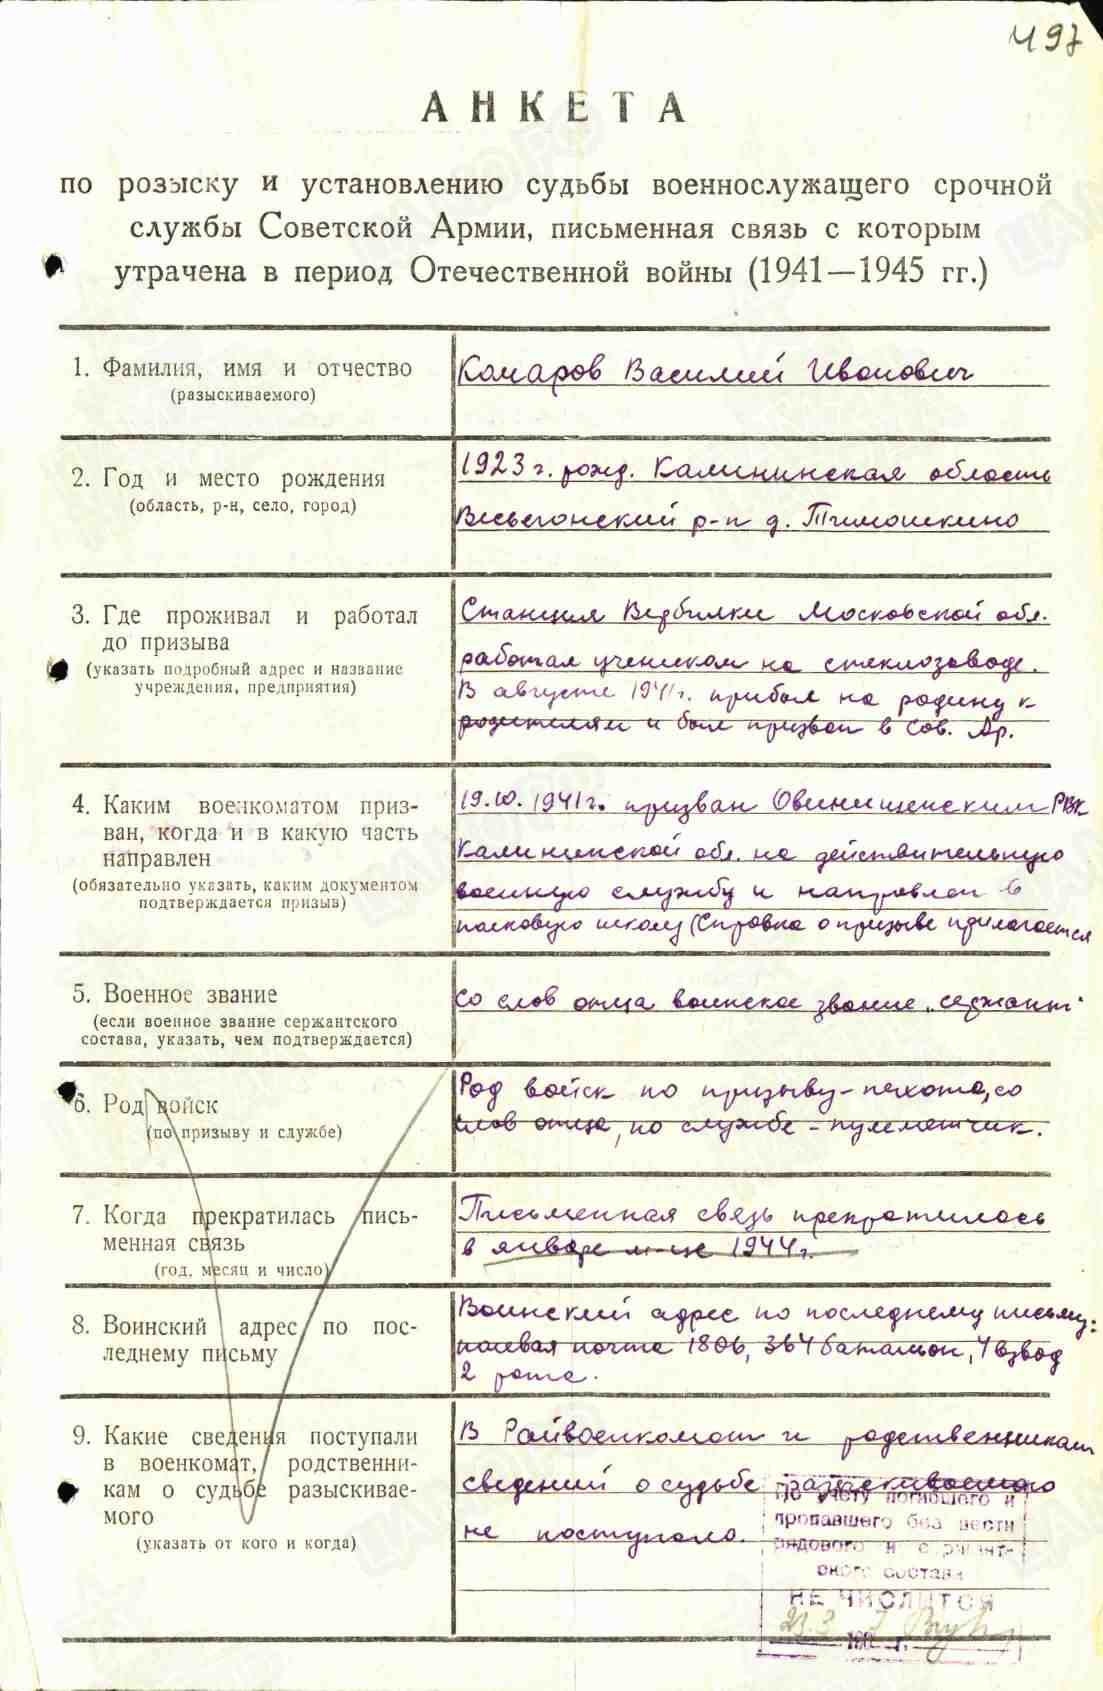 497
АНКЕТА
по розыску и установлению судьбы военнослужащего срочной
службы Советской Армии, письменная связь с которым
утрачена в период Отечественной войны (1941—1945 гг.)
1. Фамилия, имя и отчество
(разыскиваемого)
Комаров Василий Иванович
2. Год и место рождения
(область, р-н, село, город)
1923 г. рожд. Калининская область
Весьегонский р-н д. Тимошкино
3. Где проживал и работал
до призыва
(указать подробный адрес и название
учреждения, предприятия)
Станция Вербилки Московской обл.
работал учеником на стеклозаводе.
В августе 1941 г. прибыл на родину к
родителям и был призван в Сов. Ар.
4. Каким военкоматом приз-
ван, когда и в какую часть
направлен
(обязательно указать, каким документом
подтверждается призыв)
1941 г. призван Овинищенским РВК
Калининской обл. на действительную
военную службу и направлен в
полковую школу (Справка о призыве прилагается
5. Военное звание
(если военное звание сержантского
состава, указать, чем подтверждается)
Со слов отца воинское звание „сержант"
6. Род войск
(по призыву и службе)
Род войск по призыву - пехота, со
слов отца, по службе - пулеметчик.
7. Когда прекратилась пись-
менная связь
(год, месяц и число)
Письменная связь прекратилась
в январе м-це 1944 г.
8. Воинский адрес по пос-
леднему письму
Воинский адрес по последнему письму:
полевая почта 1806, 364 батальон, 4 взвод
2 рота.
9. Какие сведения поступали
в военкомат, родственни-
кам о судьбе разыскивае-
мого
(указать от кого и когда)
В Райвоенкомат и родственникам
сведений о судьбе разыскиваемого
не поступало.
По учету погибшего и
пропавшего без вести
рядового и сержант-
ского состава
НЕ ЧИСЛИТСЯ
23.3